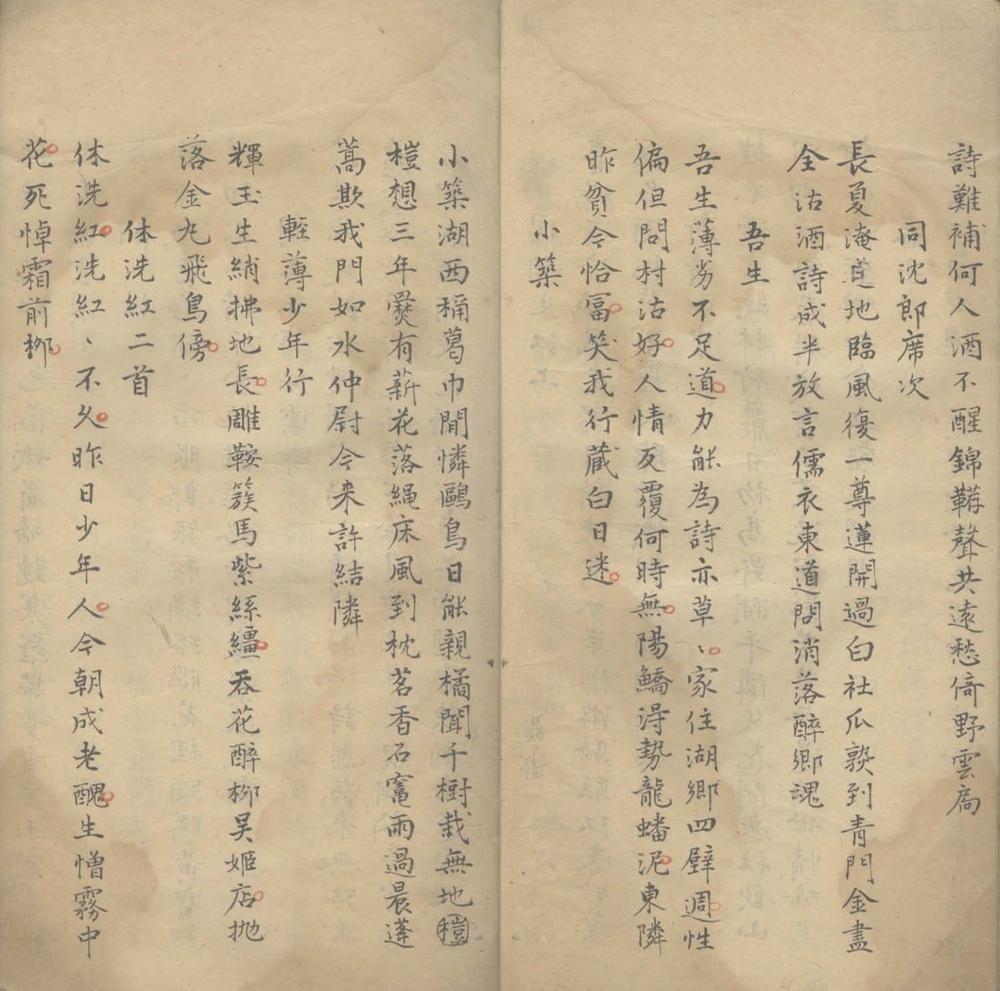 詩難補何人酒不醒錦鞯聲共遠愁倚野雲扃
同沈郎席次
長夏淹道地臨風復一尊蓮開過白社瓜熟到青門金盡
全沽酒詩成半放言儒衣東道問消落醉鄉魂
吾生
吾生薄劣不足道力能為詩亦草〻家住湖鄉四壁週性
偏但問村沽好人情反覆何時無陽鱎淂勢龍蟠泥東隣
昨貧今恰冨笑我行藏白日迷
小築
小築湖西稱葛巾閒憐鷗鳥日能親橘聞千樹栽無地㮟
榿想三年爨有薪花落繩床風到枕茗香石竃雨過晨蓬
蒿欺我門如水仲尉今来許結隣
輕薄少年行
輝玉生綃拂地長雕鞍簇馬紫絲繮吞花醉栁吴姬店抛
落金丸飛鳥傍
休洗紅二首
休洗紅洗紅〻不久昨日少年人今朝成老醜生憎霧中
花死悼霜前栁